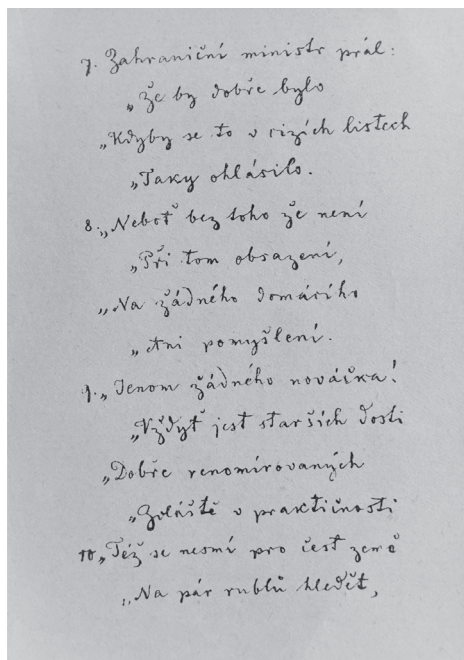 7. Zahraniční ministr prál:
„Že by dobře bylo
„Kdyby se to v cizích listech
„Taky ohlásilo.
8. „Neboť bez toho že není
„Při tom obsazení,
„Na žádného domácího
„Ani pomyšlení.
9. „Jenom žádného nováčka!
„Vždyť jest starších dosti
„Dobře renomírovaných
„Zvláště v praktičnosti
10 „Též se nesmí pro čest země
„Na pár rublů hledět,